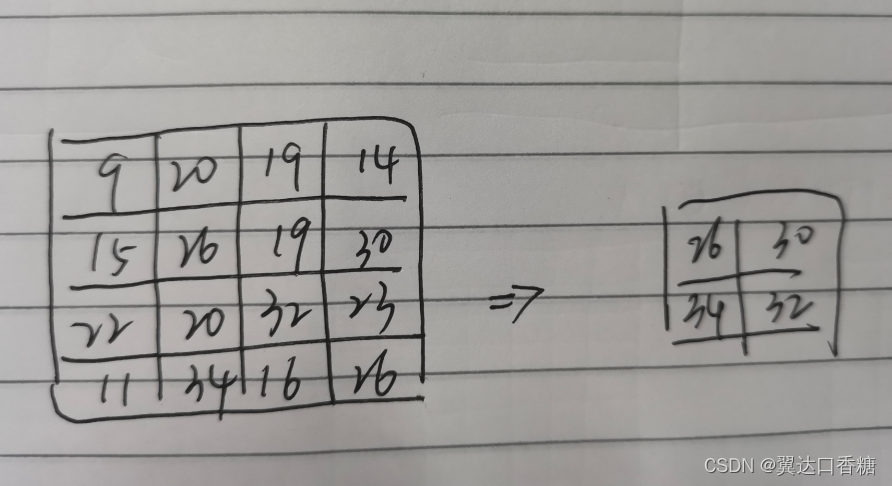 9 20 19 14
15 26 19 30
22 20 32 23
11 34 16 26
=>
26 30
34 32
CSDN @翼达口香糖